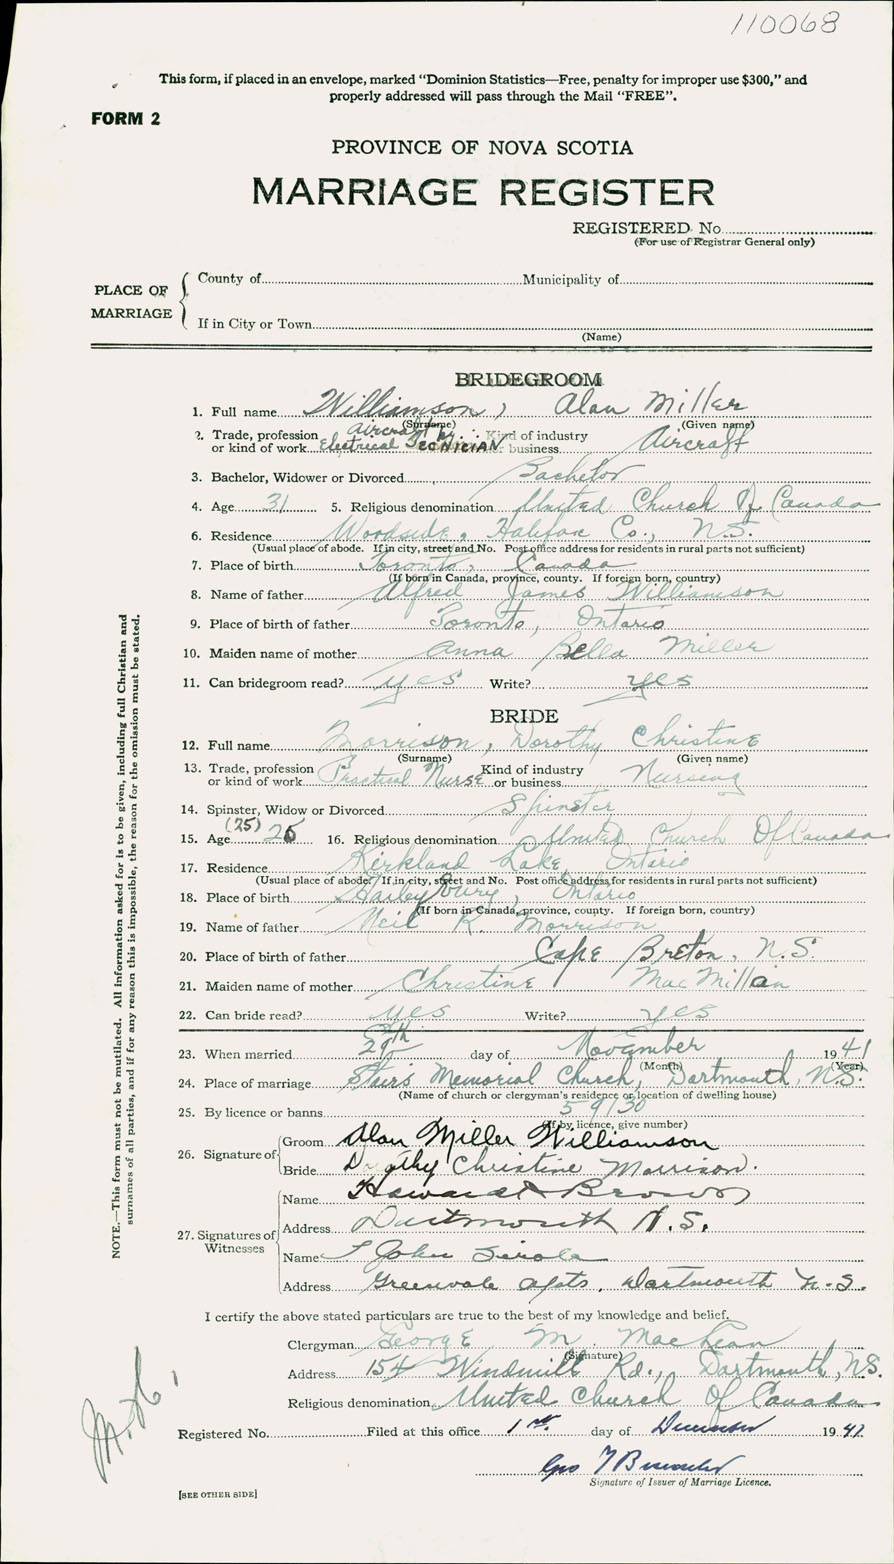 110068
This form, if placed in an envelope, marked "Dominion Statistics—Free, penalty for improper use $300," and
properly addressed will pass through the Mail "FREE".
FORM 2
PROVINCE OF NOVA SCOTIA
MARRIAGE REGISTER
REGISTERED No.
(For use of Registrar General only)
PLACE OF MARRIAGE
County of Municipality of
If in City or Town
(Name)
BRIDEGROOM
1. Full name Williamson, Alan Miller
(Surname) (Given name)
2. Trade, profession or kind of work Aircraft Electrical Technician Kind of industry or business Aircraft
3. Bachelor, Widower or Divorced Bachelor
4. Age 31 5. Religious denomination United Church Of Canada
6. Residence Woodside, Halifax Co., N.S.
(Usual place of abode. If in city, street and No. Post office address for residents in rural parts not sufficient)
7. Place of birth Toronto, Canada
(If born in Canada, province, county. If foreign born, country)
8. Name of father Alfred James Williamson
9. Place of birth of father Toronto, Ontario
10. Maiden name of mother Anna Bella Miller
11. Can bridegroom read? yes Write? yes
BRIDE
12. Full name Morrison, Dorothy Christine
(Surname) (Given name)
13. Trade, profession or kind of work Practical Nurse Kind of industry or business Nursing
14. Spinster, Widow or Divorced Spinster
15. Age (25) 26 16. Religious denomination United Church Of Canada
17. Residence Kirkland Lake, Ontario
(Usual place of abode. If in city, street and No. Post office address for residents in rural parts not sufficient)
18. Place of birth Haileybury, Ontario
(If born in Canada, province, county. If foreign born, country)
19. Name of father Neil R. Morrison
20. Place of birth of father Cape Breton, N.S.
21. Maiden name of mother Christine MacMillan
22. Can bride read? yes Write? yes
23. When married 29th day of November 1941
(Month) (Year)
24. Place of marriage Stairs Memorial Church, Dartmouth, N.S.
(Name of church or clergyman's residence or location of dwelling house)
25. By licence or banns 59130
(If by licence, give number)
26. Signature of Groom Alan Miller Williamson
Bride Dorothy Christine Morrison.
27. Signatures of Witnesses
Name Howard Brown
Address Dartmouth N.S.
Name John
Address Greenvale Apts, Dartmouth N.S.
I certify the above stated particulars are true to the best of my knowledge and belief.
Clergyman George M. MacLean
(Signature)
Address 154 Windmill Rd., Dartmouth, N.S.
Religious denomination United Church Of Canada
Registered No. Filed at this office 1st day of December 1941
Geo
Signature of Issuer of Marriage Licence.
[SEE OTHER SIDE]
NOTE.—This form must not be mutilated. All information asked for is to be given, including full Christian and
surnames of all parties, and if for any reason this is impossible, the reason for the omission must be stated.